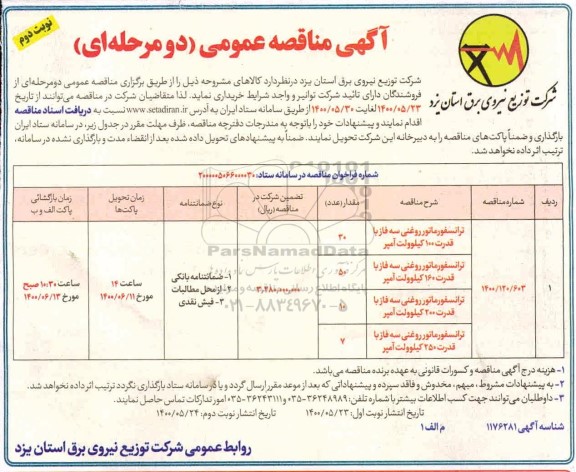 نوبت دوم
آگهی مناقصه عمومی (دو مرحله‌ای)
شرکت توزیع نیروی برق استان یزد
شرکت توزیع نیروی برق استان یزد درنظردارد کالاهای مشروحه ذیل را از طریق برگزاری مناقصه عمومی دومرحله‌ای از
فروشندگان دارای تائید شرکت توانیر و واجد شرایط خریداری نماید. لذا متقاضیان شرکت در مناقصه می‌توانند از تاریخ
۱۴۰۰/۰۵/۲۳ لغایت ۱۴۰۰/۰۵/۳۰ از طریق سامانه ستاد ایران به آدرس www.setadiran.ir نسبت به دریافت اسناد مناقصه
اقدام نمایند و پیشنهادات خود را باتوجه به مندرجات دفترچه مناقصه، ظرف مهلت مقرر در جدول زیر، در سامانه ستاد ایران
بارگذاری و ضمناً پاکت‌های مناقصه را به دبیرخانه این شرکت تحویل نمایند. ضمناً به پیشنهادهای تحویل داده شده بعد از انقضاء مدت و بارگذاری نشده در سامانه،
ترتیب اثر داده نخواهد شد.
شماره فراخوان مناقصه در سامانه ستاد: ۲۰۰۰۰۰۵۰۶۶۰۰۰۰۳۰
ردیف شماره مناقصه شرح مناقصه مقدار (عدد) تضمین شرکت در مناقصه (ریال) نوع ضمانتنامه زمان تحویل پاکت‌ها زمان بازگشائی پاکت الف و ب
۱ ۱۴۰۰/۱۳۰/۶۰۳
ترانسفورماتور روغنی سه فاز با قدرت ۱۰۰ کیلوولت آمپر ۳۰
ترانسفورماتور روغنی سه فاز با قدرت ۱۶۰ کیلوولت آمپر ۵۰
ترانسفورماتور روغنی سه فاز با قدرت ۲۰۰ کیلوولت آمپر ۱۰
ترانسفورماتور روغنی سه فاز با قدرت ۲۵۰ کیلوولت آمپر ۷
۳,۴۸۰,۰۰۰,۰۰۰
۱- ضمانتنامه بانکی
۲- از محل مطالبات
۳- فیش نقدی
ساعت ۱۴
مورخ ۱۴۰۰/۰۶/۱۱
ساعت ۱۰:۳۰ صبح
مورخ ۱۴۰۰/۰۶/۱۳
ParsNamadData
۰۲۱-۸۸۳۴۹۶۷۰-۵
۱- هزینه درج آگهی مناقصه و کسورات قانونی به عهده برنده مناقصه می‌باشد.
۲- به پیشنهادات مشروط، مبهم، مخدوش و فاقد سپرده و پیشنهاداتی که بعد از موعد مقرر ارسال گردد و یا در سامانه ستاد بارگذاری نگردد ترتیب اثر داده نخواهد شد.
۳- داوطلبان می‌توانند جهت کسب اطلاعات بیشتر با شماره تلفن: ۳۶۲۴۸۹۸۹-۰۳۵ و ۳۶۲۴۳۱۱۱-۰۳۵ امور تدارکات تماس حاصل نمایند.
تاریخ انتشار نوبت اول: ۱۴۰۰/۰۵/۲۳ تاریخ انتشار نوبت دوم: ۱۴۰۰/۰۵/۲۴
شناسه آگهی ۱۱۷۶۲۸۱ م الف ۱
روابط عمومی شرکت توزیع نیروی برق استان یزد